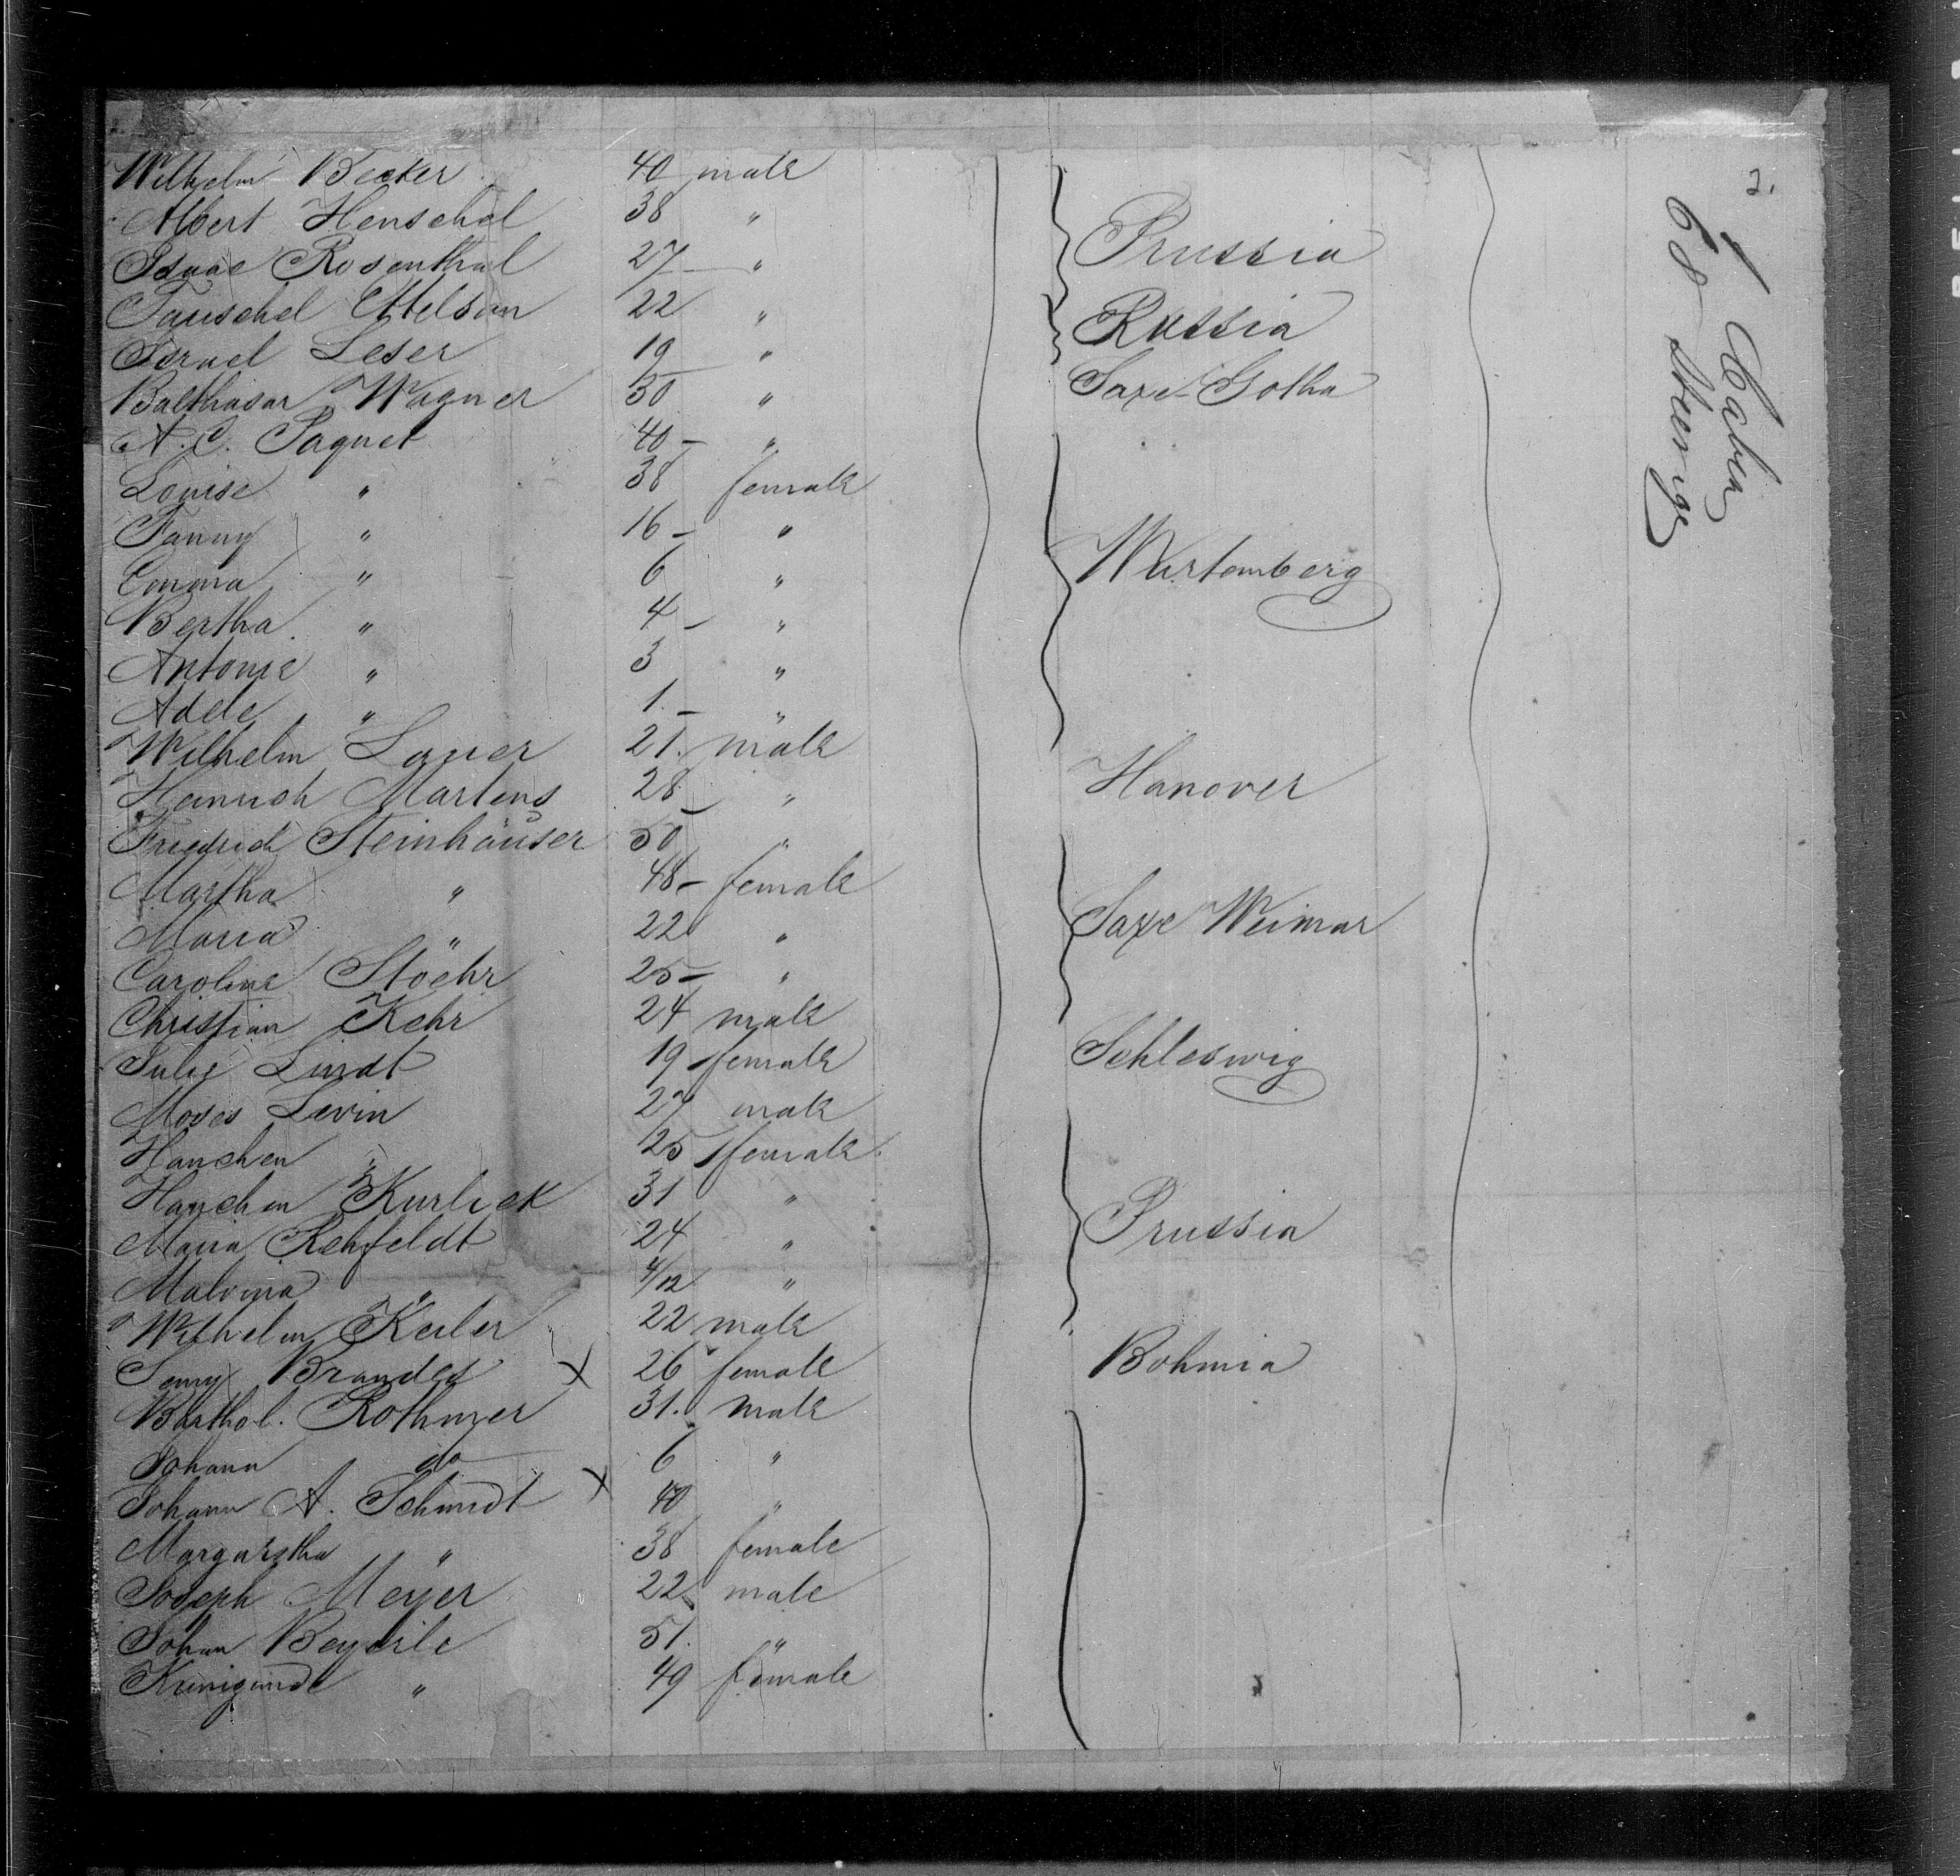 2.
1 Cabin
68 Steerage
Wilhelm Becker 40 male
Albert Henschel 38 " Prussia
Isaac Rosenthal 27 "
Tauschel 22 " Russia
Israel Leser 19 "
Balthasar Wagner 30 " Saxe-Gotha
A. C. Paquet 40 "
Louise " 38 female
Fanny " 16 "
Emma " 6 " Wurtemberg
Bertha " 4 "
Antonie " 3 "
Adele " 1 "
Wilhelm Lauer 21. male
Heinrich Martens 28 " Hanover
Friedrich Steinhäuser 50 "
Martha " 48 female
Maria " 22 " Saxe Weimar
Caroline Stoehr 25 "
Christian Kehr 24 male
Julie Lindt 19 female Schleswig
Moses Levin 27 male
Hanchen " 25 female
Hanchen Kurlick 31 "
Maria Rehfeldt 24 " Prussia
Malvina " 4/12 "
Wilhelm Keiler 22 male
Jenny Brandes X 26 female Bohmia
Barthol. Rothmyer 31. male
Johann do 6 "
Johann A. Schmidt X 40 "
Margaretha " 38 female
Joseph Meyer 22 male
Johan Beyerle 51. "
Kunigunde " 49 female